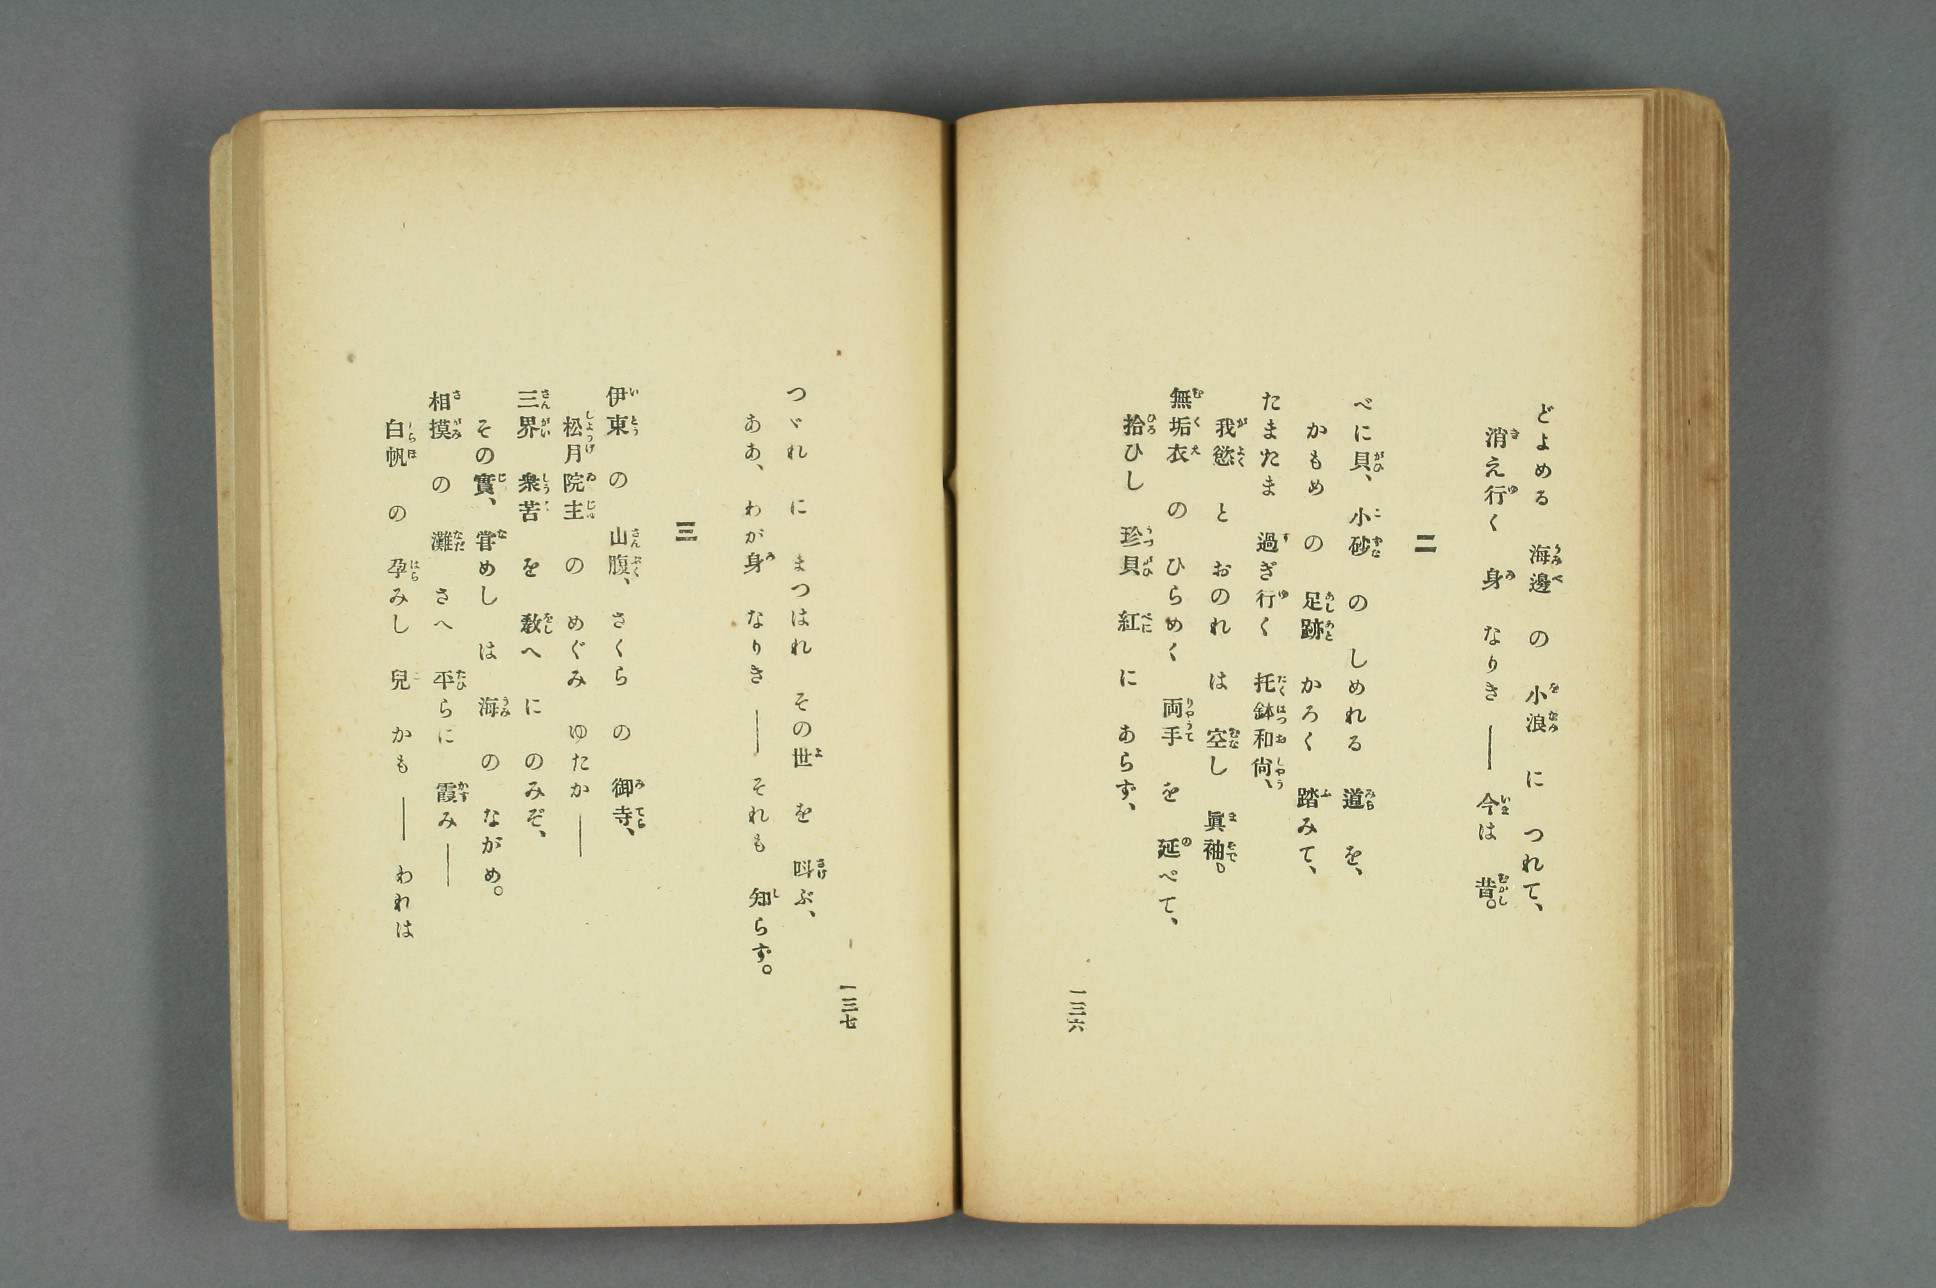 どよめる 海邊 の 小浪 に つれて、
消え行く 身 なりき ―― 今は 昔。
二
べに貝、小砂 の しめれる 道 を、
かもめ の 足跡 かろく 踏みて、
たまたま 過ぎ行く 托鉢和尙、
我慾 と おのれ は 空し 眞袖。
無垢衣 の ひらめく 両手 を 延べて、
拾ひし 珍貝 紅 に あらず、
一三六
つゞれ に まつはれ その世 を 叫ぶ、
ああ、わが身 なりき ―― それも 知らず。
三
伊東 の 山腹、さくら の 御寺、
松月院主 の めぐみ ゆたか ――
三界 衆苦 を 敎へ に のみぞ、
その實、甞めし は 海 の ながめ。
相摸 の 灘 さへ 平らに 霞み ――
白帆 の 孕みし 兒 かも ―― われは
一三七